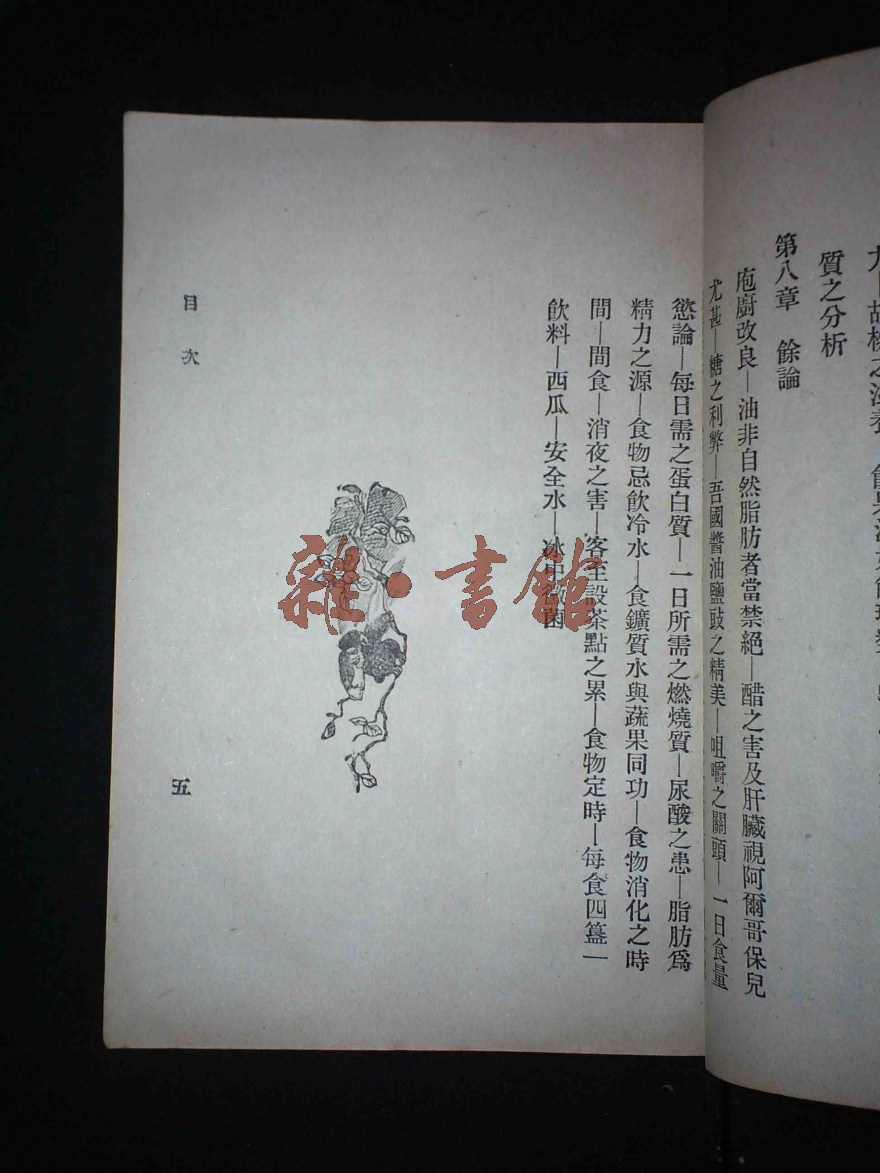 質之分析
第八章　餘論
庖廚改良—油非自然脂肪者當禁絕—醋之害及肝臟視阿爾哥保兒
尤甚—糖之利弊—吾國醬油鹽豉之精美—咀嚼之關頭—一日食量
慾論—每日需之蛋白質—一日所需之燃燒質—尿酸之患—脂肪爲
精力之源—食物忌飲冷水—食鑛質水與蔬果同功—食物消化之時
間—間食—消夜之害—客至設茶點之累—食物定時—每食四簋—
飲料—西瓜—安全水—冰中微菌
目次
五
雜·書館